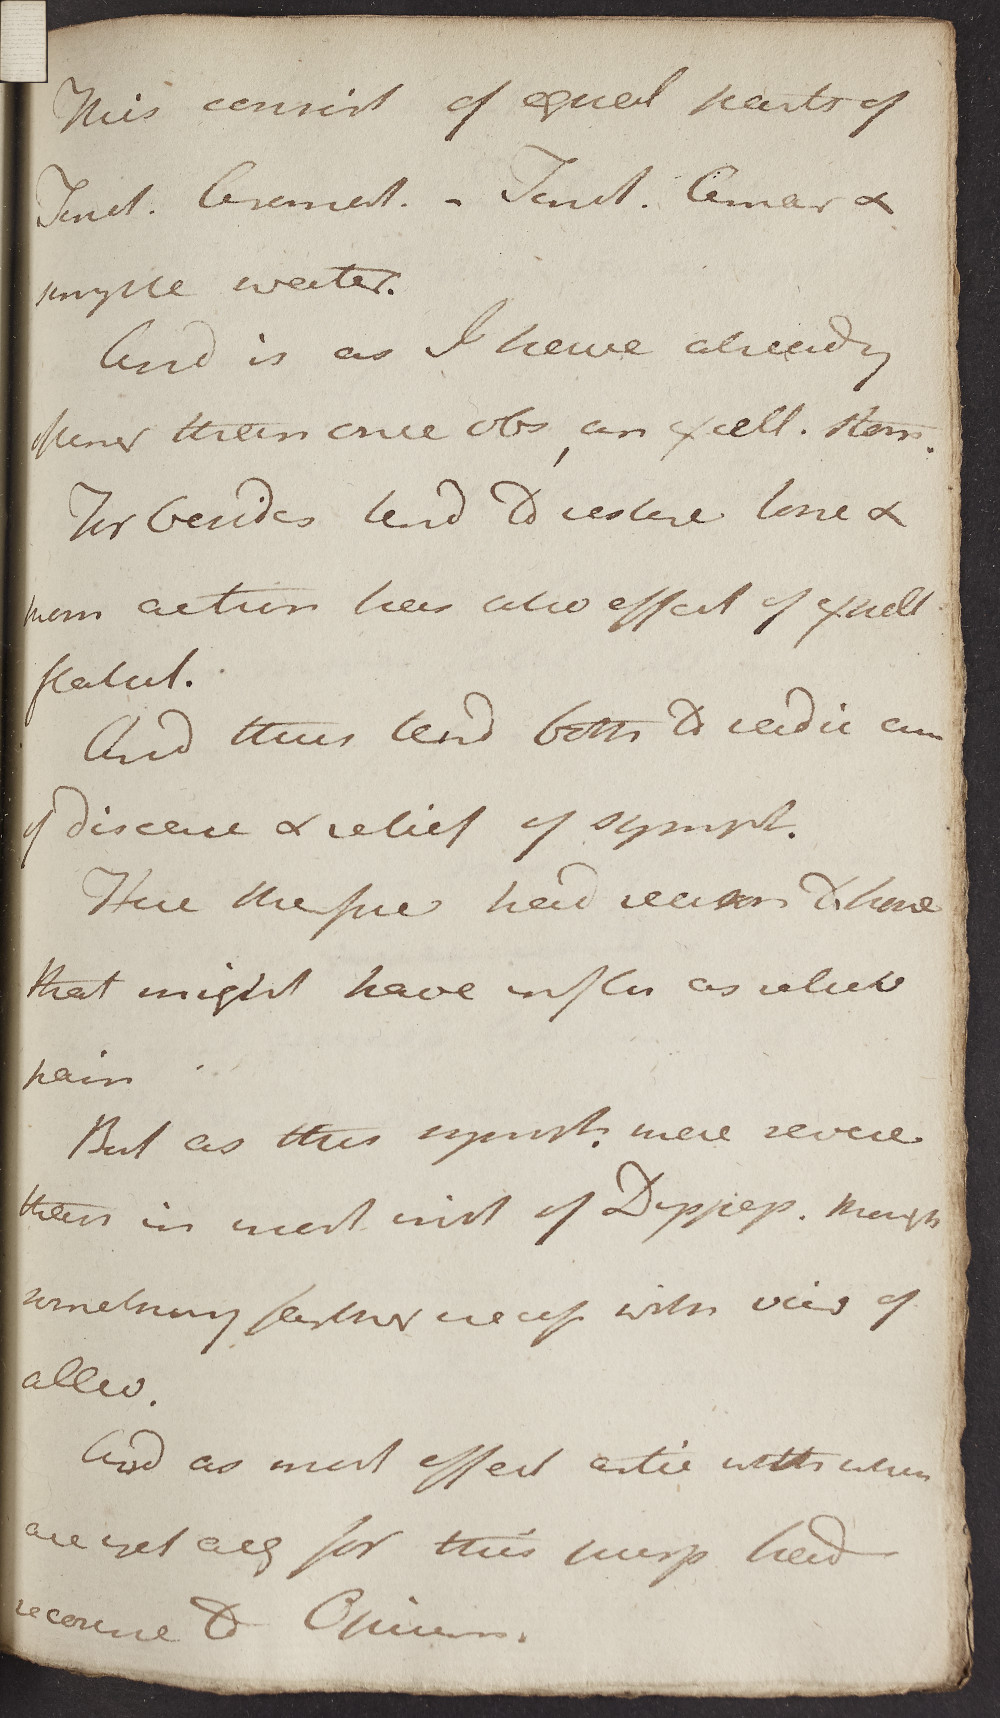 This consist of equal parts of
Tinct. Aromat. - Tinct. Amar &
simple water.
And is as I have already
oftener than once obs, an excell. Stom.
For besides tend to restore tone &
mom action has also effect of expell
flatul.
And thus tend both to radic cure
of disease & relief of sympt.
Here therefore had reason to hope
that might have influ as reliev
pain
But as this sympt. more severe
than in most inst of Dyspep. though
something farther necess with view of
allev.
And as most effect artic with which
are yet acq for this purp had
recourse to Opium.